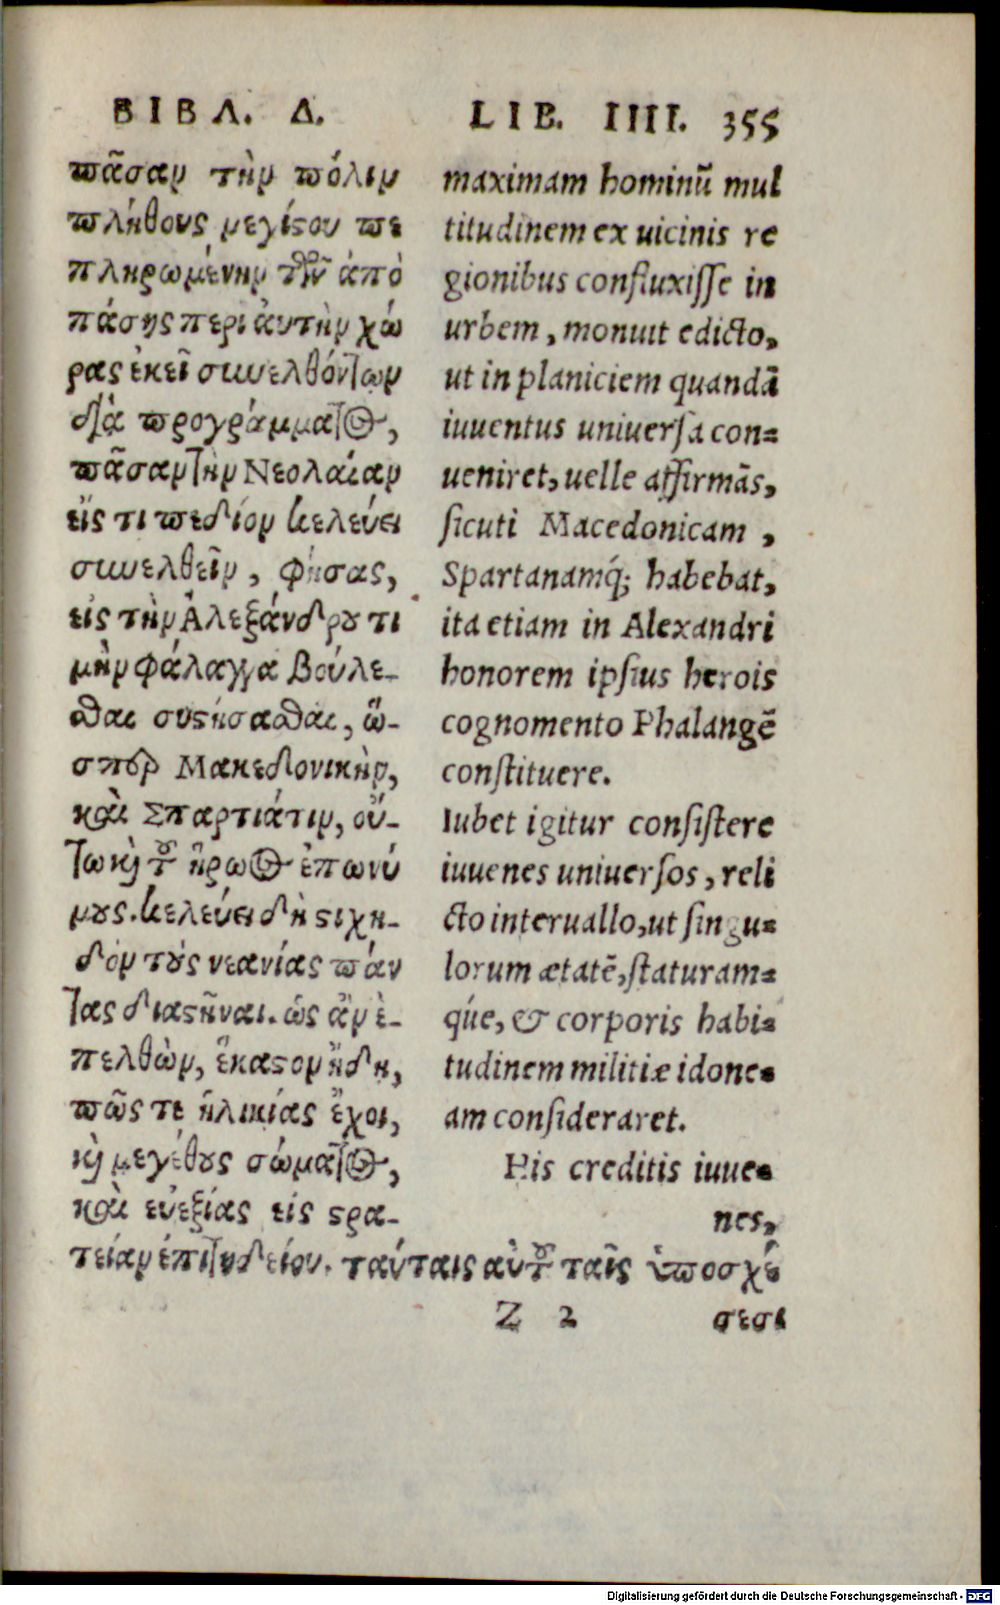 ΒΙΒΛ. Δ.
πᾶσαν τὴν πόλιν
πλήθους μεγίϛου πε
πληρωμένην τῶν ἀπὸ
πάσης περὶ ἀυτὴν χώ
ρας ἐκεῖ συνελθόντων
διὰ προγράμματος,
πᾶσαν τὴν Νεολαίαν
εἴς τι πεδίον κελεύει
συνελθεῖν, φήσας,
εἰς τὴν Ἀλεξάνδρου τι
μὴν φάλαγγα βούλε-
σθαι συϛήσασθαι, ὥ-
σπερ Μακεδονικὴν,
καὶ Σπαρτιάτιν, οὕ-
τω καὶ τοῦ ἥρωος ἐπωνύ
μους. κελεύει δὴ ϛιχη-
δὸν τοὺς νεανίας πάν
τας διαϛῆναι. ὡς ἂν ἐ-
πελθὼν, ἕκαϛον ἤδη,
πῶς τε ἡλικίας ἔχοι,
καὶ μεγέθους σώματος,
καὶ εὐεξίας εἰς ϛρα-
τείαν ἐπιτηδείου. ταύταις αὐτοῦ ταῖς ὑποσχέ
LIB. IIII. 355
maximam hominū mul
titudinem ex uicinis re
gionibus confluxiſſe in
urbem, monuit edicto,
ut in planiciem quandā
iuuentus uniuerſa con=
ueniret, uelle affirmās,
ſicuti Macedonicam,
Spartanamq́; habebat,
ita etiam in Alexandri
honorem ipſius herois
cognomento Phalangē
conſtituere.
Iubet igitur conſiſtere
iuuenes uniuerſos, reli
cto interuallo, ut ſingu=
lorum ætatē, ſtaturam=
q́ue, & corporis habi=
tudinem militiæ idone=
am conſideraret.
His creditis iuue=
nes,
Z 2 σεσι
Digitalisierung gefördert durch die Deutsche Forschungsgemeinschaft - DFG